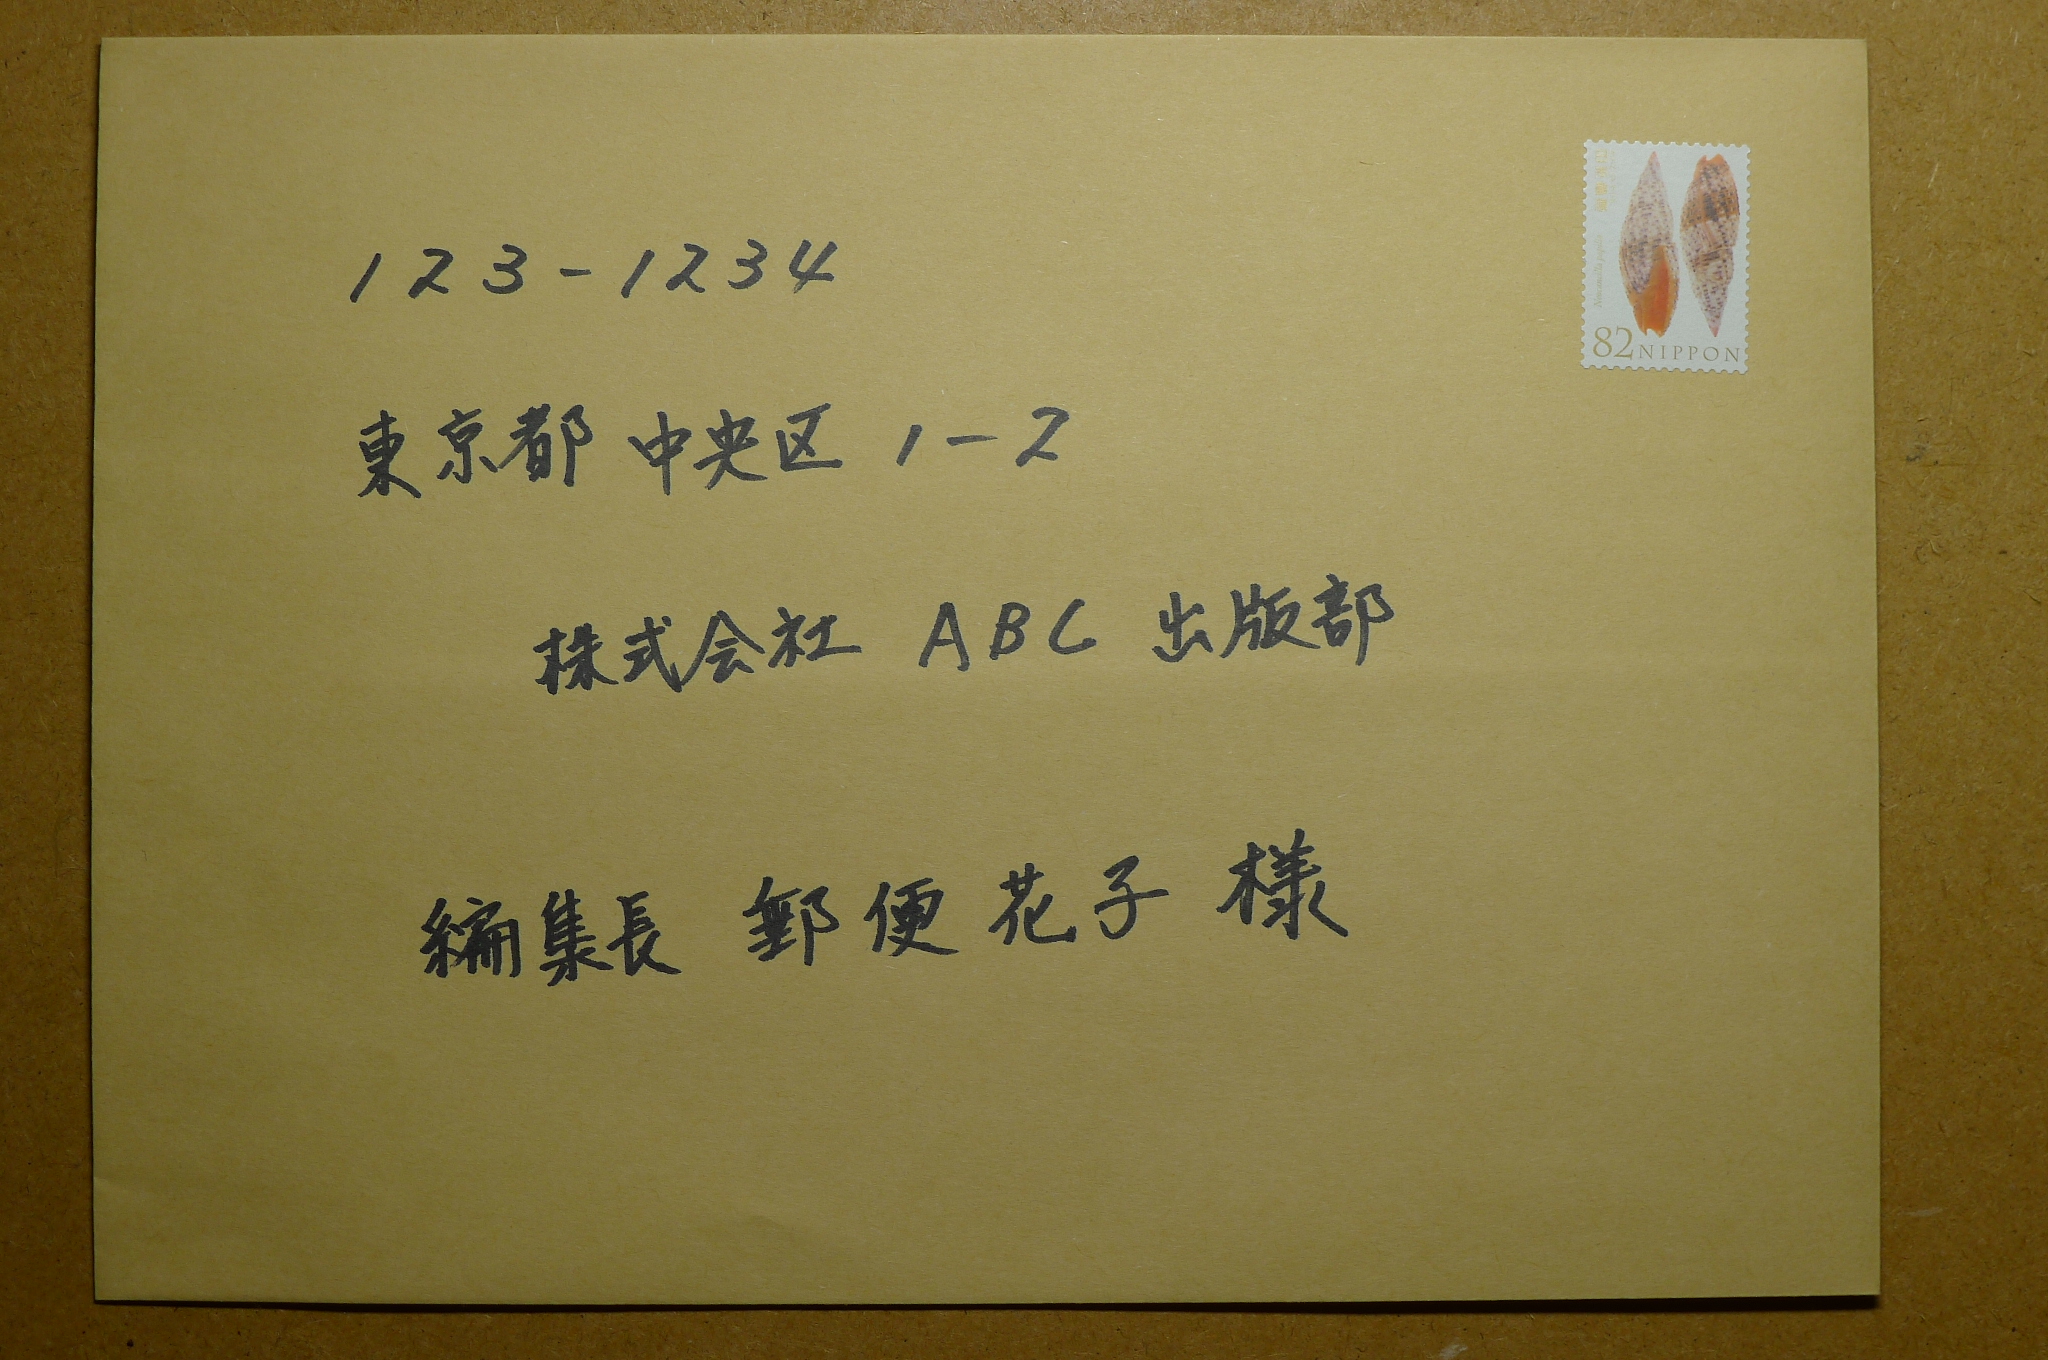 123-1234
東京都 中央区 1-2
株式会社 ABC 出版部
編集長 郵便花子 様
82 NIPPON